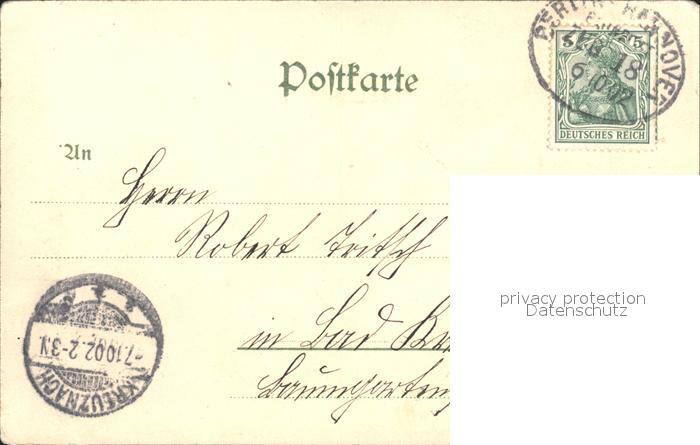 BERLIN - HANNOVER
5 5
ZUG 18
6 10 02
DEUTSCHES REICH
Postkarte
An
Herrn
Robert Tritsch
privacy protection
Datenschutz
in Bad
-7.10.02. 2-3N.
KREUZNACH